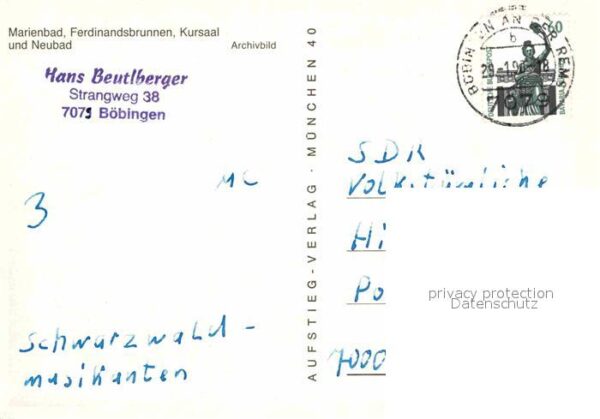 Marienbad, Ferdinandsbrunnen, Kursaal
und Neubad
Archivbild
Hans Beutlberger
Strangweg 38
7079 Böbingen
MC
3
Schwarzwald-
musikanten
AUFSTIEG-VERLAG · MÜNCHEN 40
60
BÖBINGEN AN DER REMS
b
7079
SDR
Volkstümliche
Hi
Po
7000
privacy protection
Datenschutz